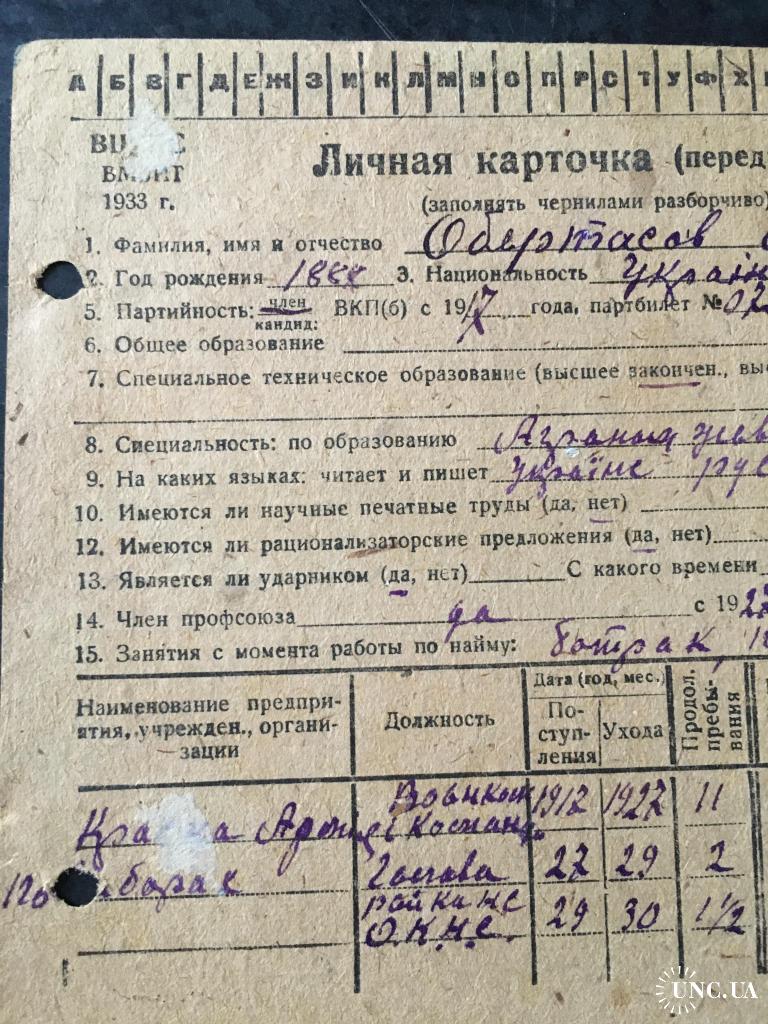 А Б В Г Д Е Ж З И К Л М Н О П Р С Т У Ф Х
1933 г.
Личная карточка (перед
(заполнять чернилами разборчиво)
1. Фамилия, имя и отчество Обертасов
2. Год рождения 1888 3. Национальность Україн
5. Партийность: член ВКП(б) с 1917 года, партбилет № 02
кандид:
6. Общее образование
7. Специальное техническое образование (высшее закончен., выс
8. Специальность: по образованию
9. На каких языках: читает и пишет Українс рус
10. Имеются ли научные печатные труды (да, нет)
12. Имеются ли рационализаторские предложения (да, нет)
13. Является ли ударником (да, нет) С какого времени
14. Член профсоюза да с 1922
15. Занятия с момента работы по найму: батрак,
Наименование предпри-
ятия, учрежден., органи-
зации
Должность
Дата (год, мес.)
По-
ступ-
ления
Ухода
Продол.
пребы-
вания
Военком 1917 1927 11
и Команд
27 29 2
Голова
райкнс 29 30 1½
О.К.Н.С.
UNC.UA